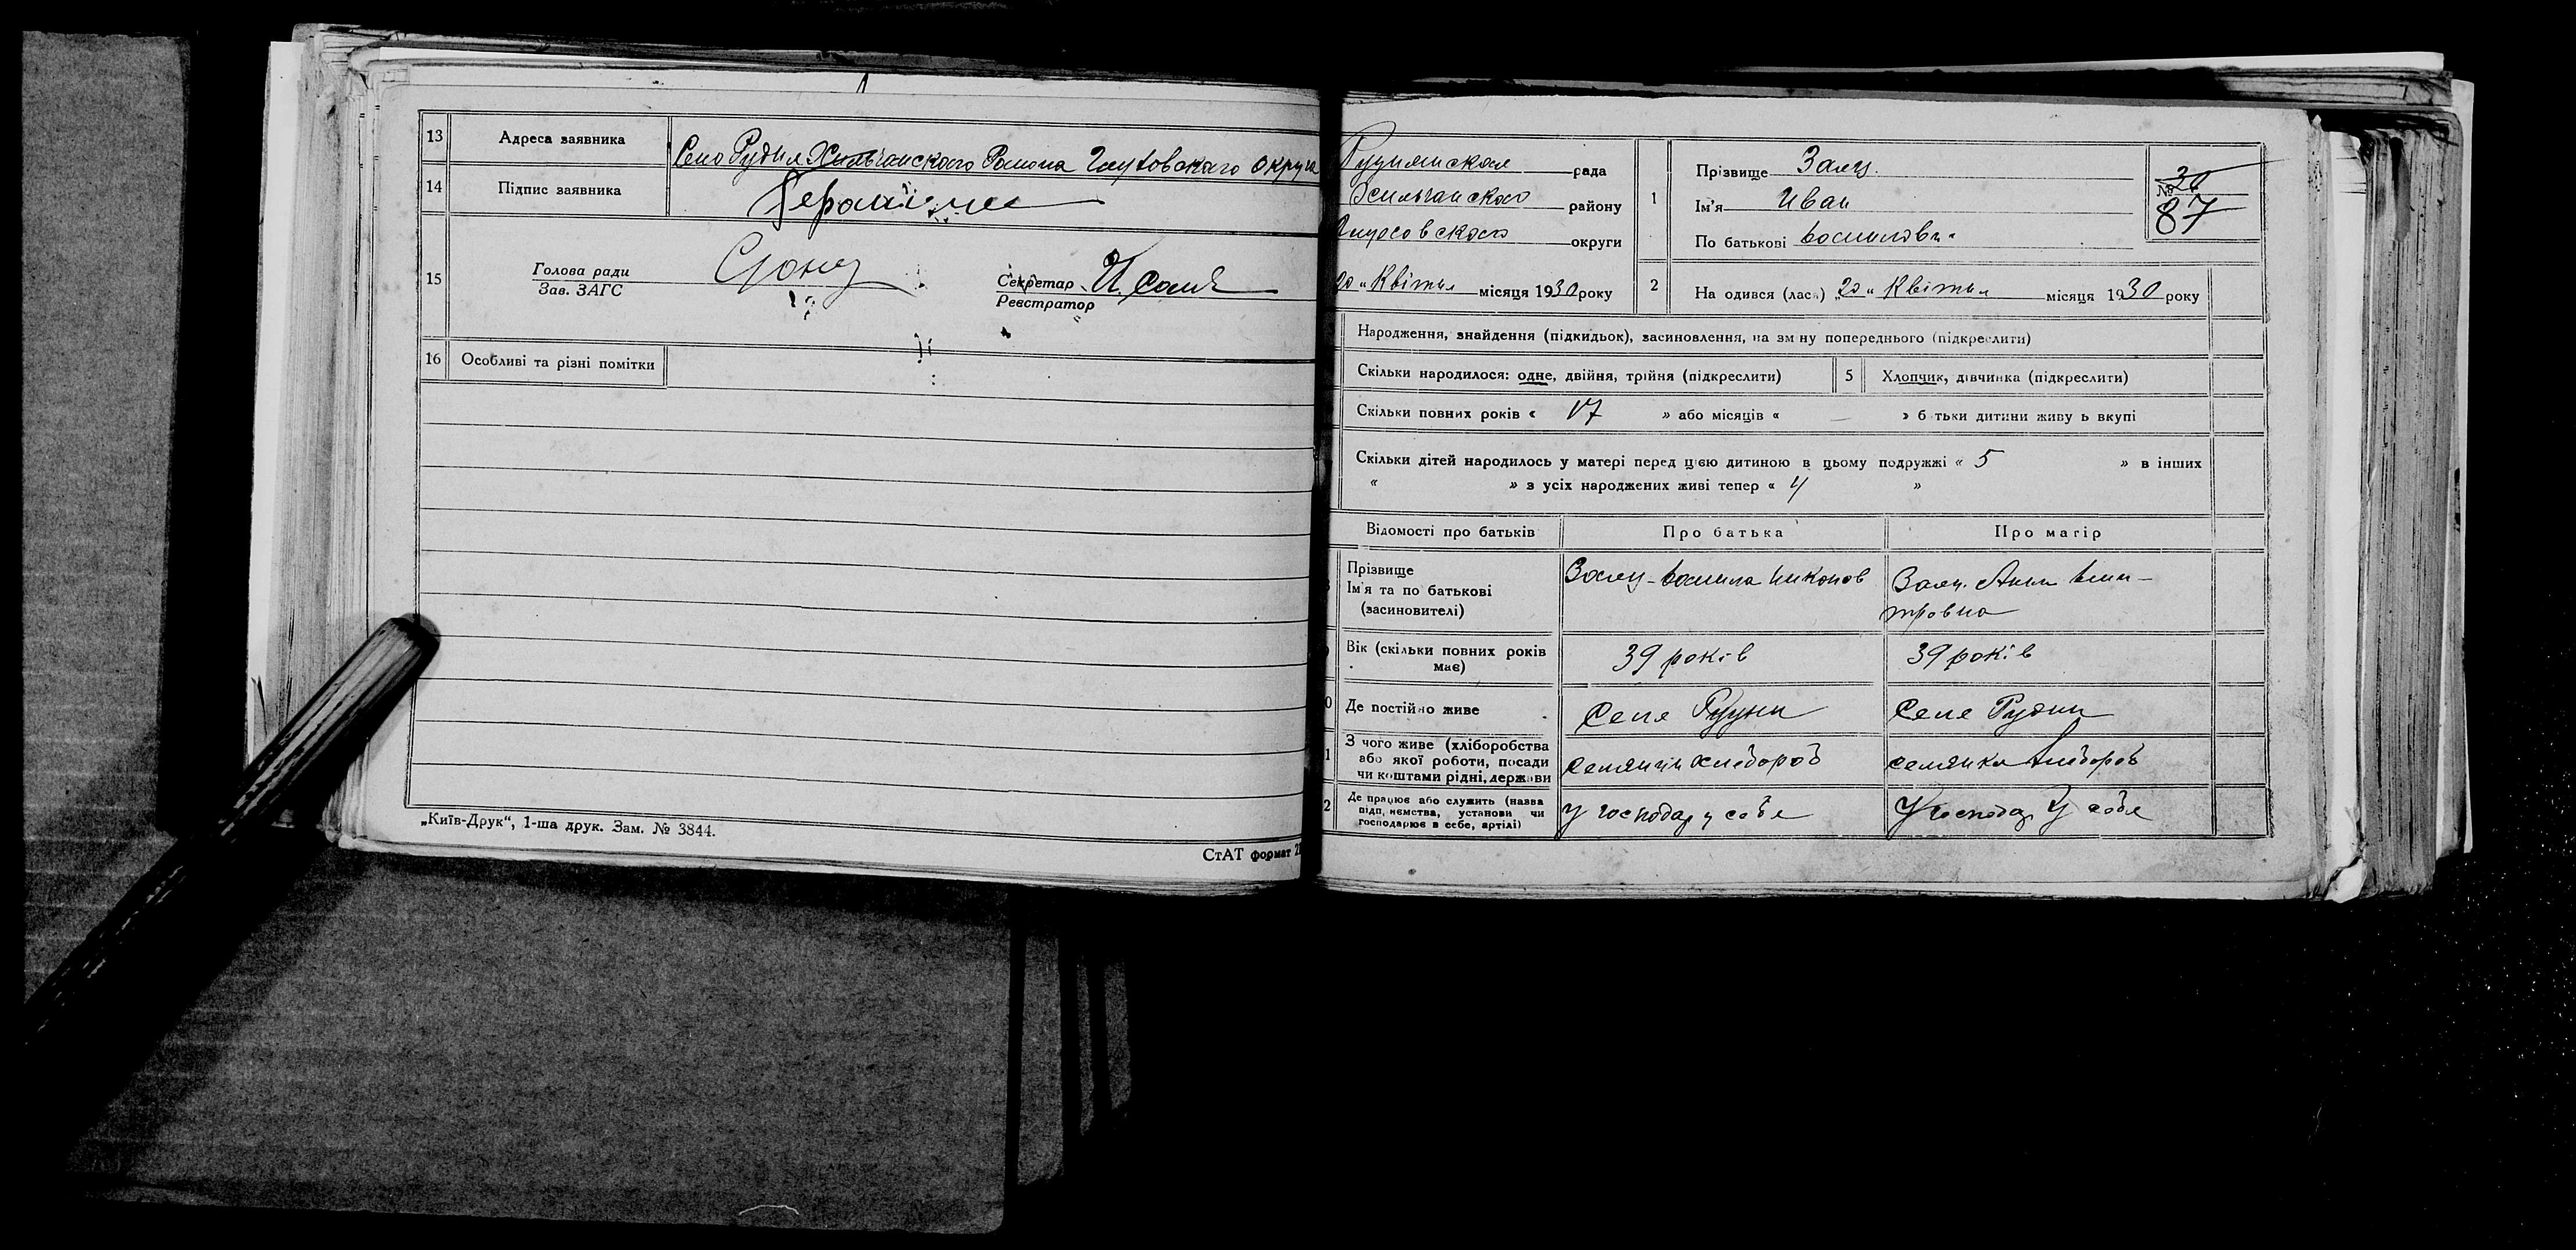 13 Адреса заявника Село Рудня Хильчанского Района Глуховского Округа
14 Підпис заявника
15 Голова ради
Зав. ЗАГС
Секретар
Реєстратор
16 Особливі та різні помітки
„Київ-Друк“, 1-ша друк. Зам. № 3844.
СтАТ формат
рада
району
округи
20 „ Квітня місяця 1930 року
1 Прізвище Заяц.
Ім'я Иван
По батькові
№ 26
87
2 На одився (лася) „20„ Квітня місяця 1930 року
Народження, знайдення (підкидьок), засиновлення, на зм ну попереднього (підкреслити)
Скільки народилося: одне, двійня, трійня (підкреслити) 5 Хлопчик, дівчинка (підкреслити)
Скільки повних років « 17 » або місяців « — » б тьки дитини живу ь вкупі
Скільки дітей народилось у матері перед цією дитиною в цьому подружжі « 5 » в інших
« » з усіх народжених живі тепер « 4 »
Відомості про батьків Про батька Про матір
Прізвище
Ім'я та по батькові
(засиновителі)
Заяц
Вік (скільки повних років
має)
39 років 39 років
Де постійно живе Селе Рудни Селе Рудни
З чого живе (хліборобства
або якої роботи, посади
чи коштами рідні, держави
Де працює або служить (назва
підп иємства, установи чи
господарює в себе, артілі)
у господар у себе У господар У себе